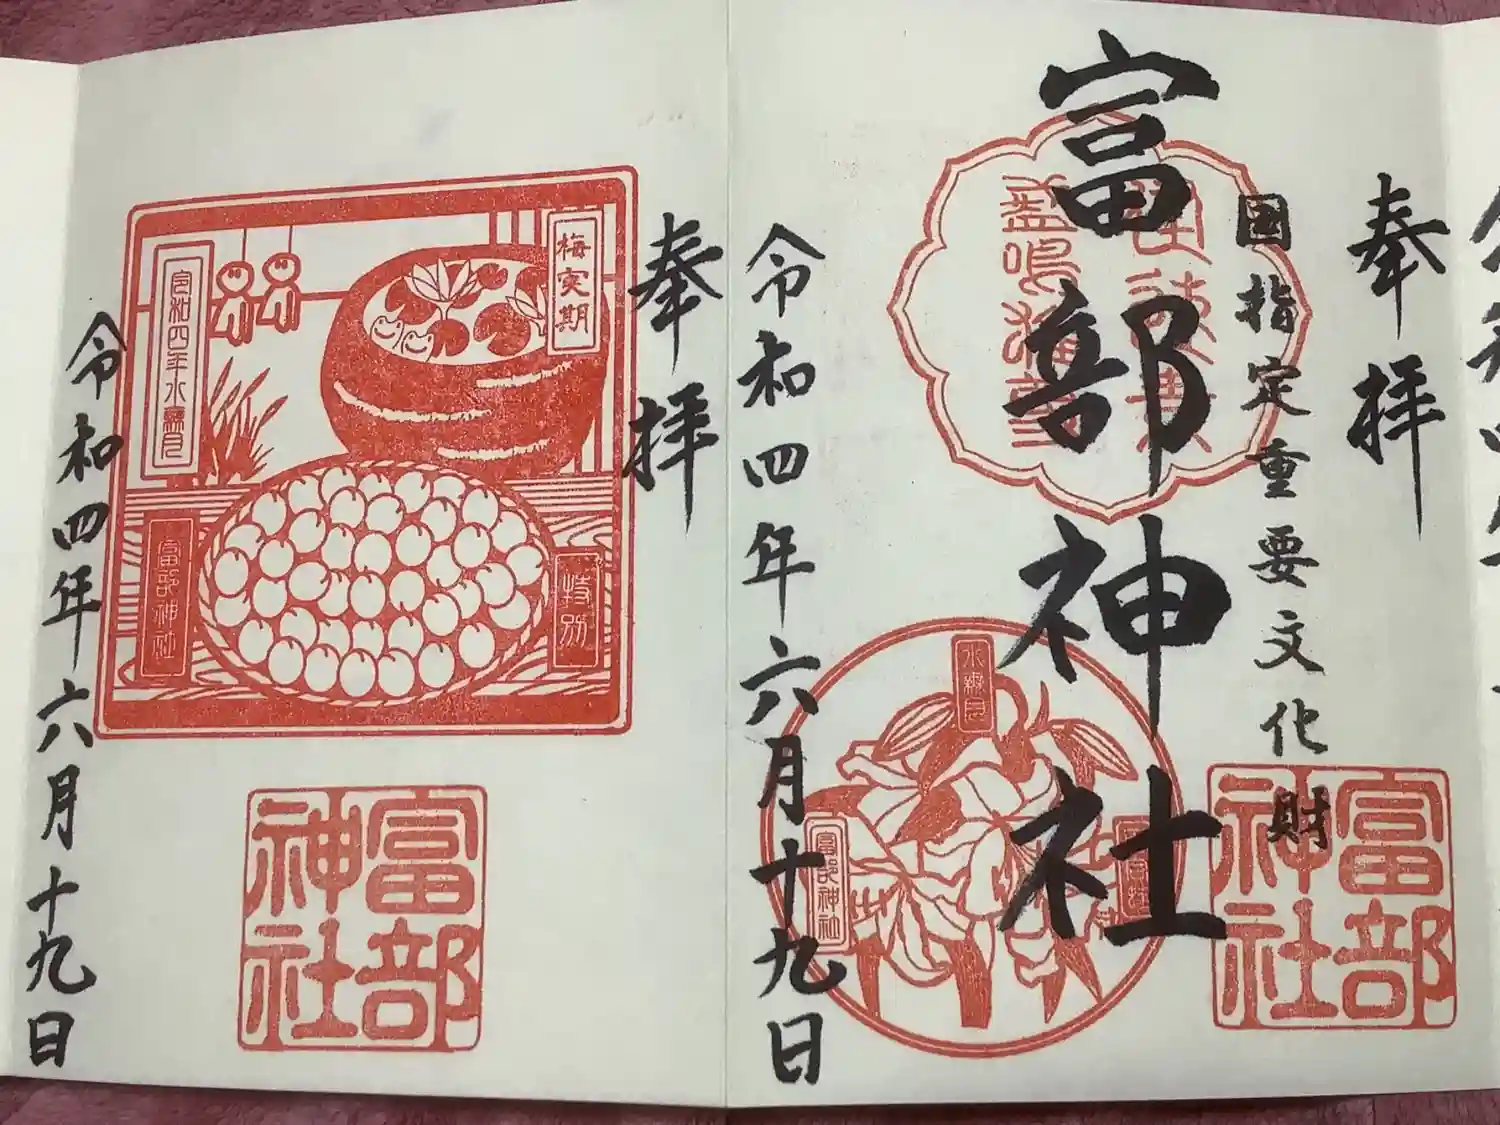 奉拝
国指定重要文化財
富部神社
令和四年六月十九日
水無月
富部神社
富部神社
奉拝
梅実期
特別
令和四年水無月
富部神社
富部神社
令和四年六月十九日